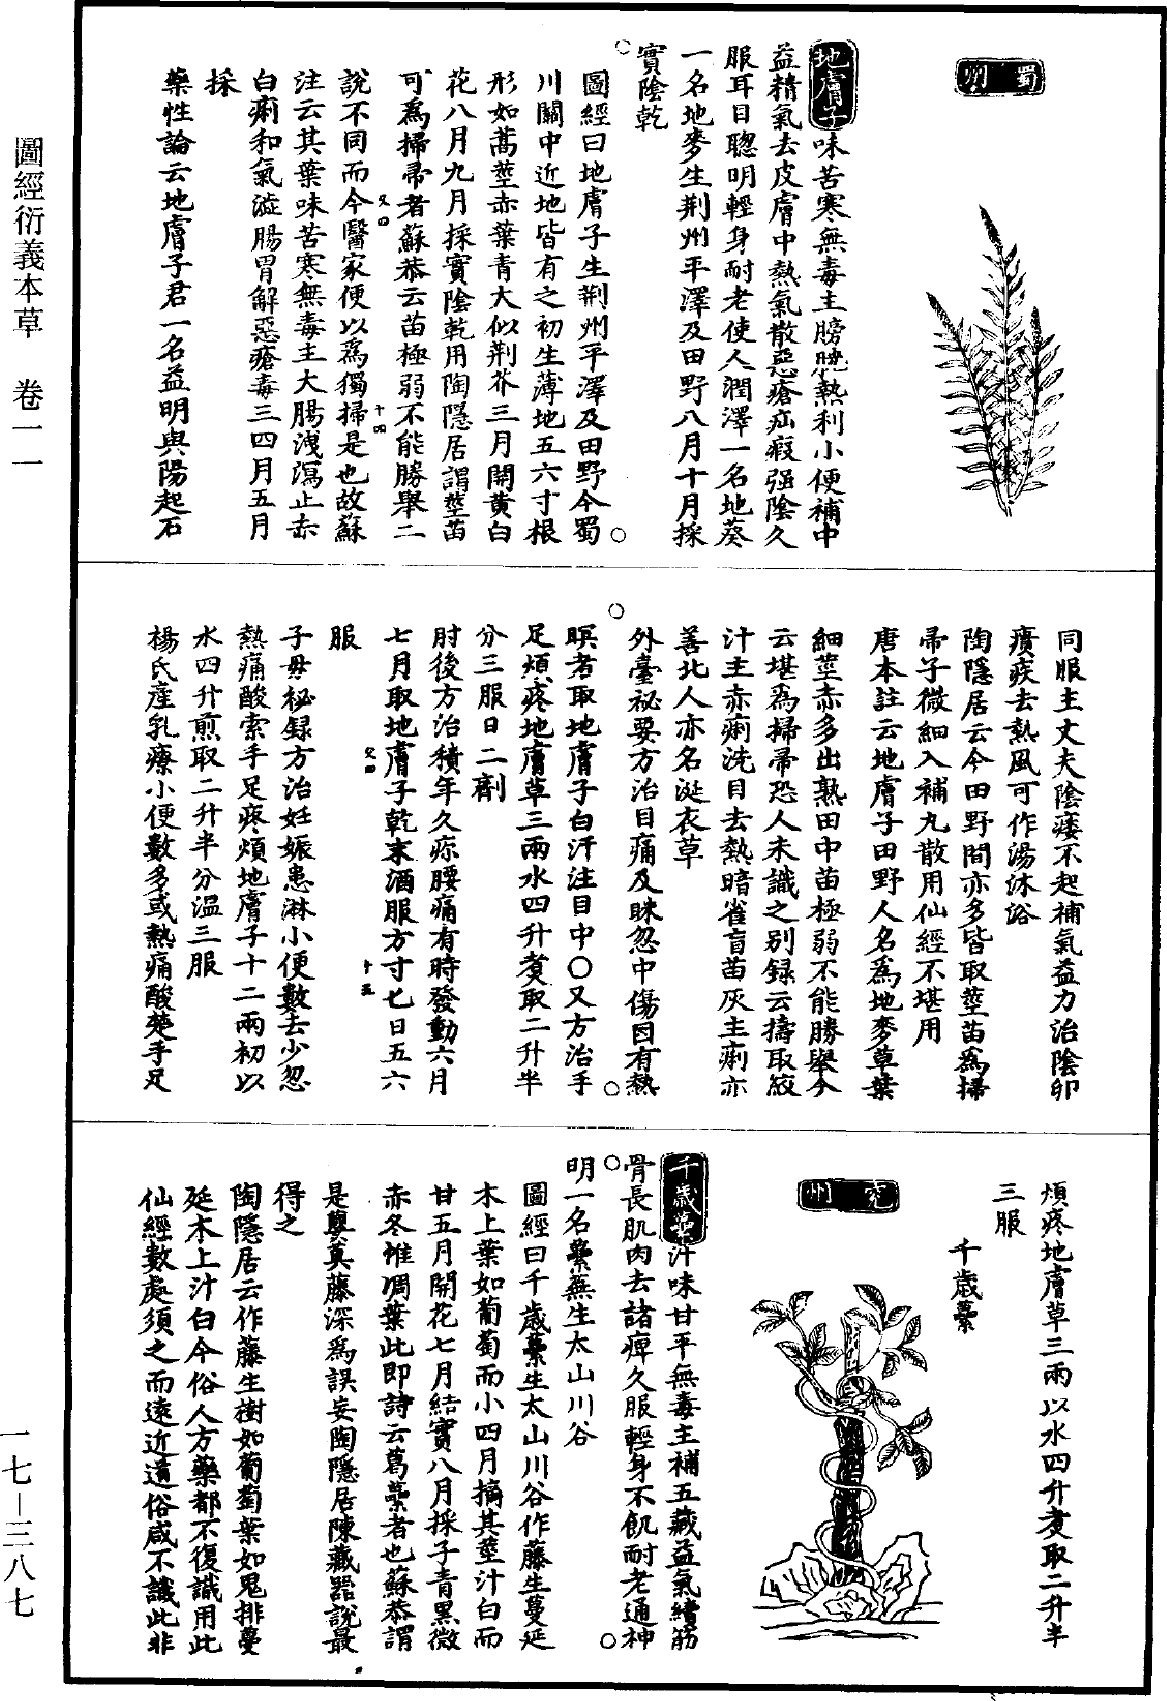 圖經衍義本草　卷一一
一七—三八七
蜀州
地膚子味苦寒無毒主膀胱熱利小便補中
益精氣去皮膚中熱氣散惡瘡疝瘕强陰久
服耳目聰明輕身耐老使人潤澤一名地葵
一名地麥生荆州平澤及田野八月十月採
實陰乾
圖經曰地膚子生荆州平澤及田野今蜀
川關中近地皆有之初生薄地五六寸根
形如蒿莖赤葉青大似荆芥三月開黄白
花八月九月採實陰乾用陶隱居謂莖苗
可爲掃帚者蘇恭云苗極弱不能勝舉二
又四
十四
說不同而今醫家便以爲獨掃是也故蘇
注云其葉味苦寒無毒主大腸洩瀉止赤
白痢和氣澁腸胃解惡瘡毒三四月五月
採
藥性論云地膚子君一名益明與陽起石
同服主丈夫陰痿不起補氣益力治陰卵
㿉疾去熱風可作湯沐浴
陶隱居云今田野間亦多皆取莖苗爲掃
帚子微細入補丸散用仙經不堪用
唐本註云地膚子田野人名爲地麥草葉
細莖赤多出熟田中苗極弱不能勝舉今
云堪爲掃帚恐人未識之别録云擣取絞
汁主赤痢洗目去熱暗雀盲苗灰主痢亦
善北人亦名涎衣草
外臺祕要方治目痛及眯忽中傷因有熱
暝者取地膚子白汗注目中○又方治手
足煩疼地膚草三兩水四升煑取二升半
分三服日二劑
肘後方治積年久㾕腰痛有時發動六月
七月取地膚子乾末酒服方寸匕日五六
又四
十五
服
子母秘録方治妊娠患淋小便數去少忽
熱痛酸索手足疼煩地膚子十二兩初以
水四升煎取二升半分温三服
楊氏産乳療小便數多或熱痛酸楚手足
煩疼地膚草三兩以水四升煑取二升半
三服
千歲虆
兖州
千歲虆汁味甘平無毒主補五藏益氣續筋
骨長肌肉去諸痺久服輕身不飢耐老通神
明一名虆蕪生太山川谷
圖經曰千歲虆生太山川谷作藤生蔓延
木上葉如葡萄而小四月摘其莖汁白而
甘五月開花七月結實八月採子青黑微
赤冬惟凋葉此即詩云葛虆者也蘇恭謂
是蘡薁藤深爲誤妄陶隱居陳藏器說最
得之
陶隱居云作藤生樹如葡萄葉如鬼排蔓
延木上汁白今俗人方藥都不復識用此
仙經數處須之而遠近道俗咸不識此非